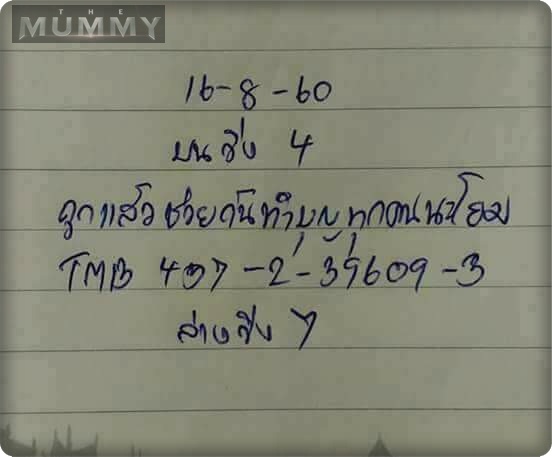 THE
MUMMY
16-8-60
บน วิ่ง 4
ถูกแล้ว ช่วยกันทำบุญทุกคนนะโยม
TMB 407-2-39609-3
ล่างวิ่ง 7